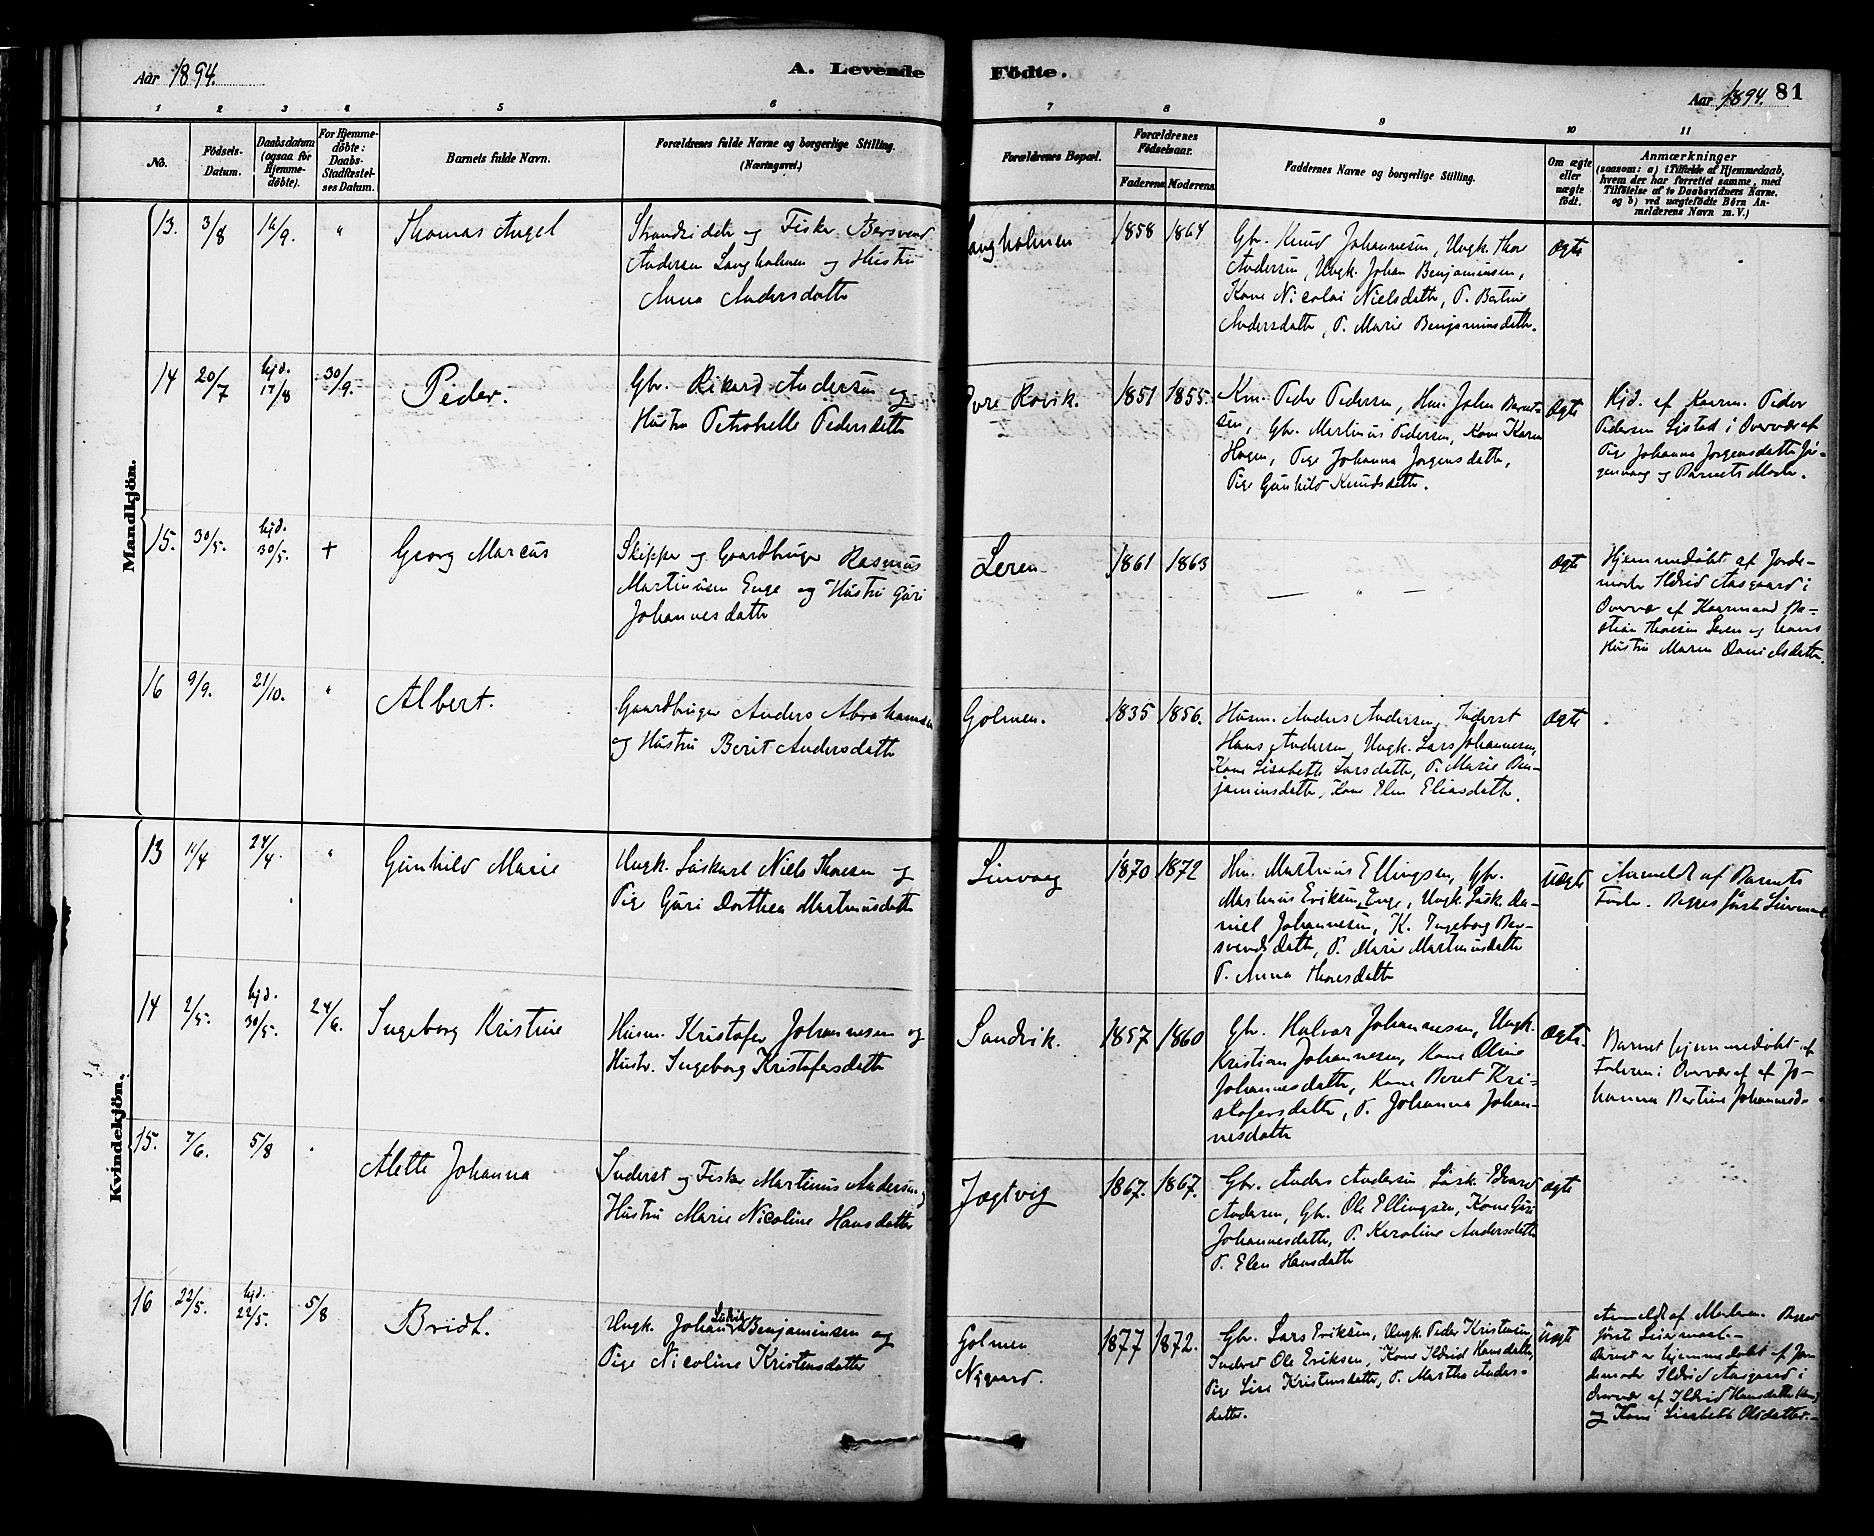 Aar 1894.
A. Levende Födte.
Aar 1894. 81
1 2 3 4 5 6 7 8 9 10 11
No.
Födsels-
Datum.
Daabsdatum
(ogsaa for
Hjemme-
döbte).
For Hjemme-
döbte:
Daabs-
Stadfæstel-
ses Datum.
Barnets fulde Navn.
Forældrenes fulde Navne og borgerlige Stilling.
(Næringsvei.)
Forældrenes Bopæl.
Forældrenes
Födselsaar.
Faderens. Moderens.
Faddernes Navne og borgerlige Stilling.
Om ægte
eller
uægte
födt.
Anmærkninger
(saasom: a) i Tilfælde af Hjemmedaab,
hvem der har forrettet samme, med
Tilföielse af to Daabsvidners Navne.
og b) ved uægtefödte Börn An-
melderens Navn m. V.)
Mandkjön.
13. 3/8 16/9. "
Thomas Angel
Strandsidder og Fisker Bersvend
Andersen Langholmen og Hustru
Anna Andersdatter
Langholmen
1858 1864
Gbr. Knud Johannesen, Ungk. Thore
Andersen, Ungk. Johan Benjaminsen,
Kone Nicolai Nielsdatter, P. Batine
Andersdatter, P. Marie Benjaminsdatter.
Ægte
14 20/7 hjd. 17/8 30/9.
Peder.
Gbr. Rikard Andersen og
Hustru Petronelle Pedersdatter
Øvre Rovik.
1851 1855.
Km. Peder Pedersen, Hm. John Bernt-
sen, Gbr. Martinus Pedersen, Kone Karen
Hagen, Pige Johanna Jørgensdatter,
Pige Gunhild Knudsdatter.
Ægte
Hjd. af Kaarm. Peder
Pedersen Sjstad i Overvær af
Pige Johanna Jørgensdatter Jør-
genvaag og Barnets Moder.
15. 30/5. hjd. 30/5. +
Georg Marcus
Skipper og Gaardbruger Rasmus
Martinusen Enge og Hustru Guri
Johannesdatter
Leren
1861 1863
— " —
Ægte
Hjemmedøbt af Jorde-
moder Ildrid Aasgaard i
Overvær af Kaarmand Ba-
stian Thoresen Leren og hans
Hustru Maren Danielsdatter.
16 9/9. 21/10. "
Albert.
Gaardbruger Anders Abrahamsen
og Hustru Berit Andersdatter
Golmen.
1835 1856.
Husm. Anders Andersen, Inderst
Hans Andersen, Ungk. Lars Johannesen,
Kone Lisabeth Larsdatter, P. Marie Ben-
jaminsdatter, Kone Elen Eliasdatter.
Ægte
Kvindekjön.
13 11/4 24/4. "
Gunhild Marie
Ungk. Løskarl Niels Thoresen og
Pige Guri Dorthea Martinusdatter
Linvaag
1870 1872
Hm. Martinus Ellingsen, Gbr.
Martinus Eriksen Enge, Ungk. Løsk. Da-
niel Johannesen, K. Ingeborg Ber-
svendsdatter, P. Marie Martinusdatter
P. Anna Thoresdatter
Uægte
Anmeldt af Barnets
Fader. Begges første Leiermaal
14 2/5. hjd. 30/5. 24/6.
Ingeborg Kristine
Husm. Kristofer Johannesen og
Hustr. Ingeborg Kristofersdatter
Sandvik.
1857 1860
Gbr. Halvar Johannesen, Ungk.
Kristian Johannesen, Kone Oline
Johannesdatter, Kone Beret Kri-
stofersdatter, P. Johanna Johan-
nesdatter
Ægte.
Barnet hjemmedøbt af
Faderen i Overvær af af Jo-
hanna Bertine Johannesd.
15. 7/6. 5/8 "
Alette Johanna
Inderst og Fisker Martinus Andersen og
Hustru Marie Nicoline Hansdatter
Jægtvig
1867. 1867.
Gbr. Anders Andersen, Løsk. Edvard
Andersen, Gbr. Ole Ellingsen, Kone Guri
Johannesdatter, P. Karoline Andersdatter
P. Elen Hansdatter
Ægte
16 22/5. hjd. 22/5. 5/8
Bridt.
Ungk. Johan Ludvig Benjaminsen og
Pige Nicoline Kristensdatter
Golmen
Nygaard.
1877 1872.
Gbr. Lars Eriksen, Ungk. Peder Kristensen,
Inderst Ole Eriksen, Kone Ildrid Hansdatter,
Pige Lise Kristensdatter, P. Martha Anders-
datter.
Uægte
Anmeldt af Moderen. Begges
først Leiermaal.
Barnet er hjemmedøbt af Jor-
demoder Ildrid Aasgaard i
Overvær af Ildrid Hansdatter
og Kone Lisabeth Olsdatter.